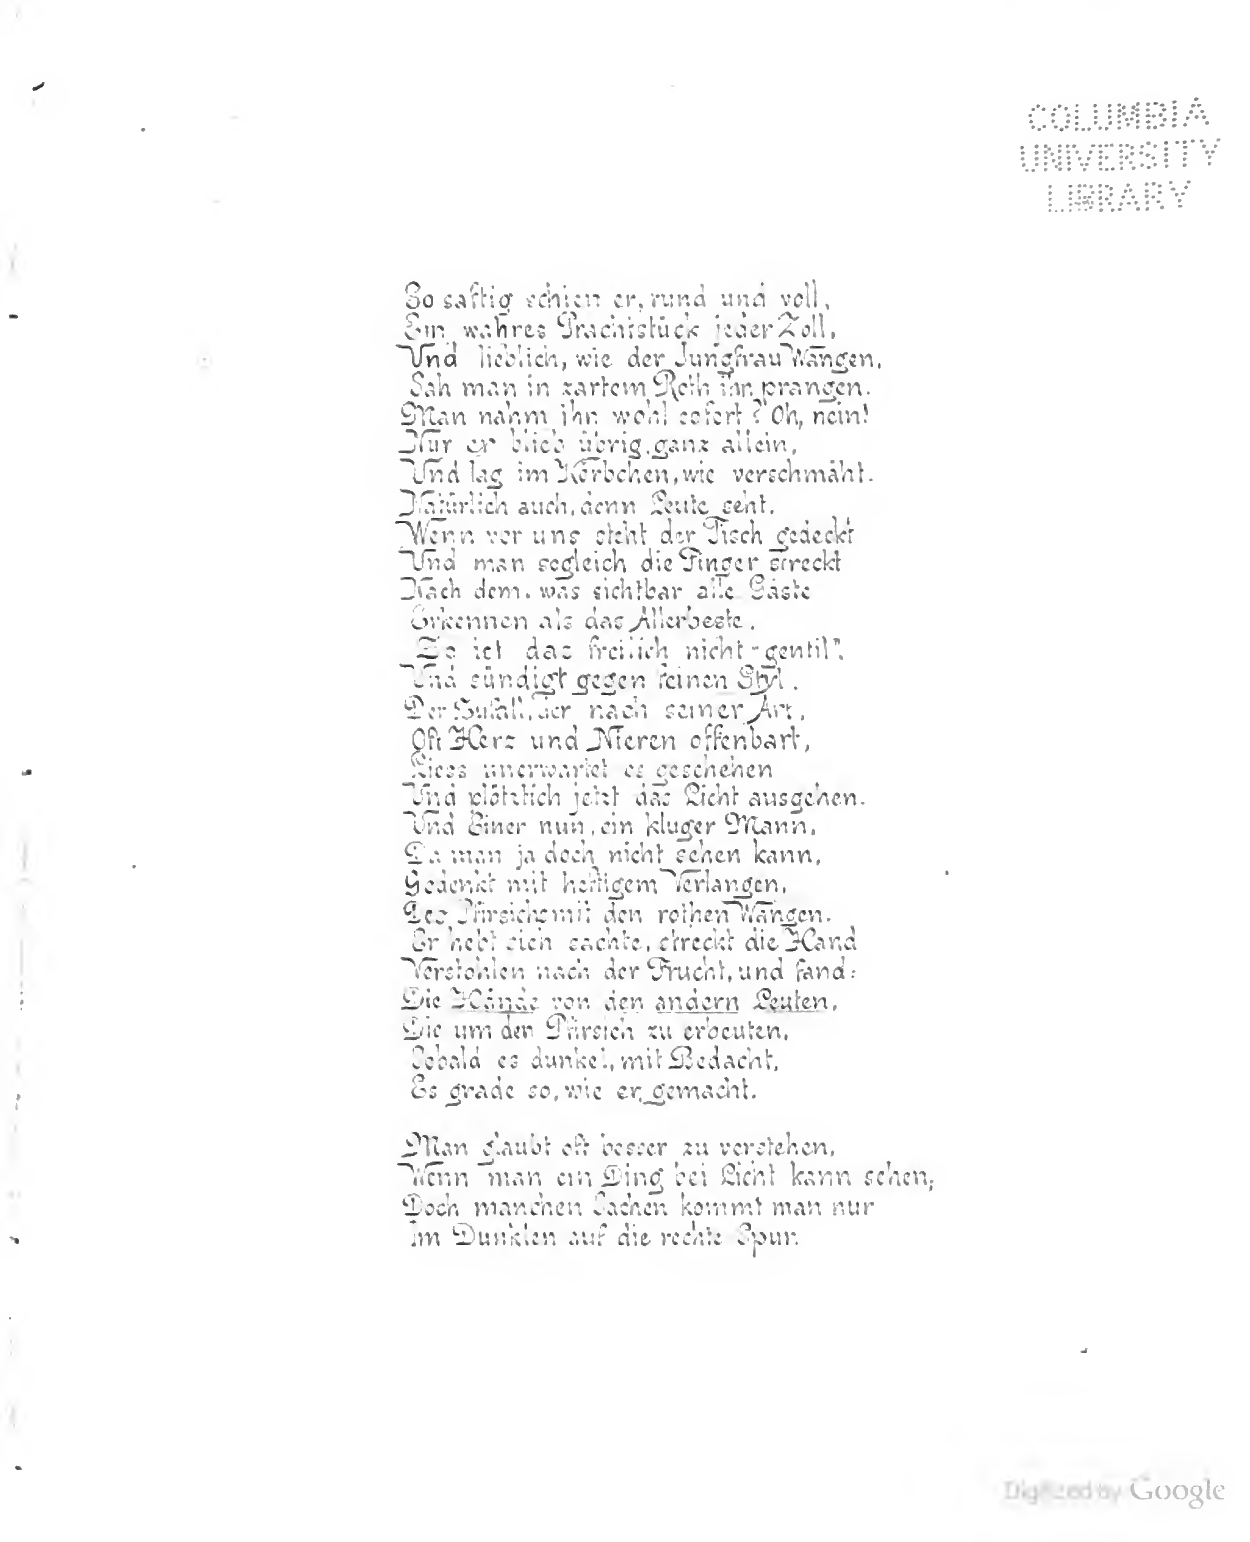 COLUMBIA
UNIVERSITY
LIBRARY
So saftig schien er, rund und voll,
Ein wahres Prachtstück jeder Zoll,
Und lieblich, wie der Jungfrau Wangen,
Sah man in zartem Roth ihn prangen.
Man nahm ihn wohl sofort? Oh, nein!
Nur er blieb übrig, ganz allein,
Und lag im Körbchen, wie verschmäht.
Natürlich auch, denn Leute seht,
Wenn vor uns steht der Tisch gedeckt
Und man sogleich die Finger streckt
Nach dem, was sichtbar alle Gäste
Erkennen als das Allerbeste,
So ist das freilich nicht "gentil",
Und sündigt gegen feinen Styl.
Der Zufall, der nach seiner Art,
Oft Herz und Nieren offenbart,
Liess unerwartet es geschehen
Und plötzlich jetzt das Licht ausgehen.
Und Einer nun, ein kluger Mann,
Da man ja doch nicht sehen kann,
Gedenkt mit heftigem Verlangen,
Des Pfirsichs mit den rothen Wangen.
Er hebt sich sachte, streckt die Hand
Verstohlen nach der Frucht, und fand:
Die Hände von den andern Leuten,
Die um den Pfirsich zu erbeuten,
Sobald es dunkel, mit Bedacht,
Es grade so, wie er, gemacht.
Man glaubt oft besser zu verstehen,
Wenn man ein Ding bei Licht kann sehen;
Doch manchen Sachen kommt man nur
Im Dunklen auf die rechte Spur.
Digitized by Google